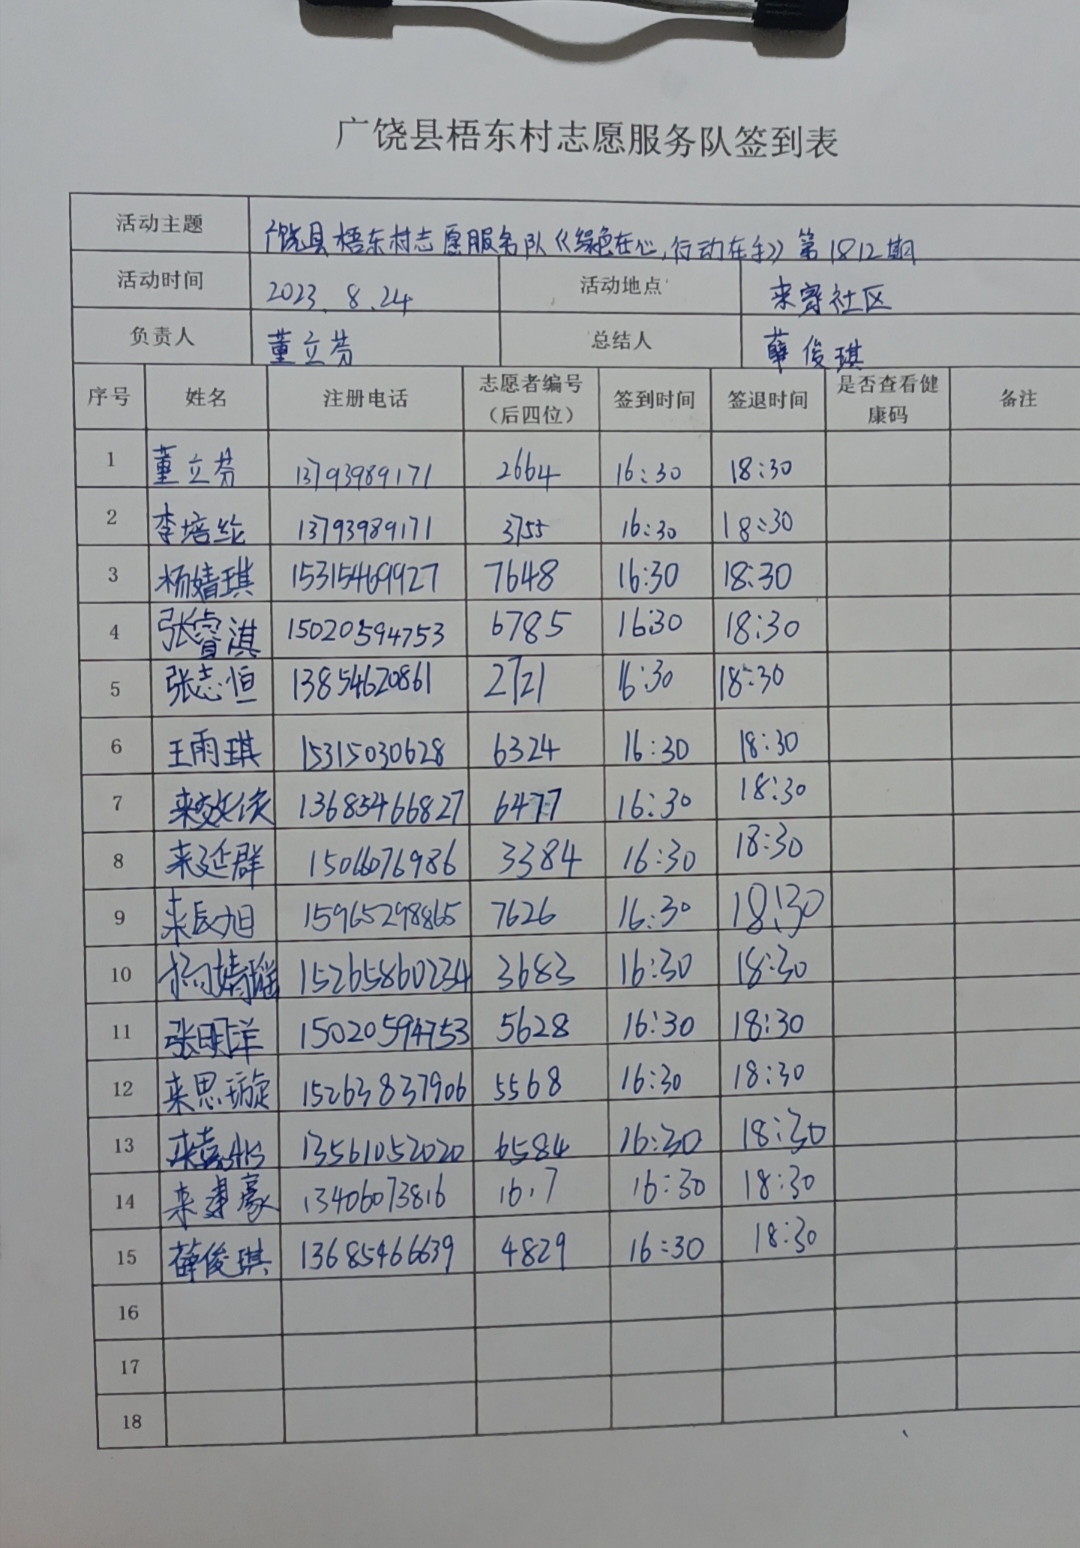 广饶县梧东村志愿服务队签到表
活动主题 广饶县梧东村志愿服务队《绿色在心,行动在手》第1812期
活动时间 2023.8.24 活动地点 来宾社区
负责人 董立芬 总结人 薛俊琪
序号 姓名 注册电话 志愿者编号（后四位） 签到时间 签退时间 是否查看健康码 备注
1 董立芬 13793989171 2664 16:30 18:30
2 李培纶 13793989171 3755 16:30 18:30
3 杨婧琪 15315469927 7648 16:30 18:30
4 张睿淇 15020594753 6785 16:30 18:30
5 张志恒 13854620861 2721 16:30 18:30
6 王雨琪 15315030628 6324 16:30 18:30
7 来 13685466827 6477 16:30 18:30
8 来延群 1506076986 3384 16:30 18:30
9 来辰旭 15965298865 7626 16:30 18:30
10 杨婧瑶 15265860234 3683 16:30 18:30
11 张明洋 15020594753 5628 16:30 18:30
12 来思璇 15263837906 5568 16:30 18:30
13 来 13561052020 6584 16:30 18:30
14 来 豪 13406073816 16.7 16:30 18:30
15 薛俊琪 13685466639 4829 16:30 18:30
16
17
18